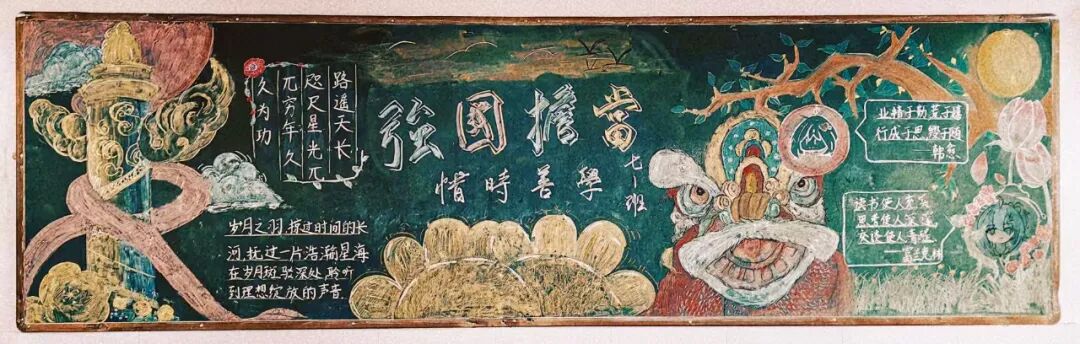 路遥天长
咫尺星光兀
兀穷年久
久为功
強國擔當
惜時善學
七1班
岁月之羽,掠过时间的长
河,抚过一片浩瀚星海
在岁月斑驳深处,聆听
到理想绽放的声音
业精于勤荒于嬉
行成于思毁于随
——韩愈
读书使人充实
思考使人深邃
交谈使人清醒
——富兰克林